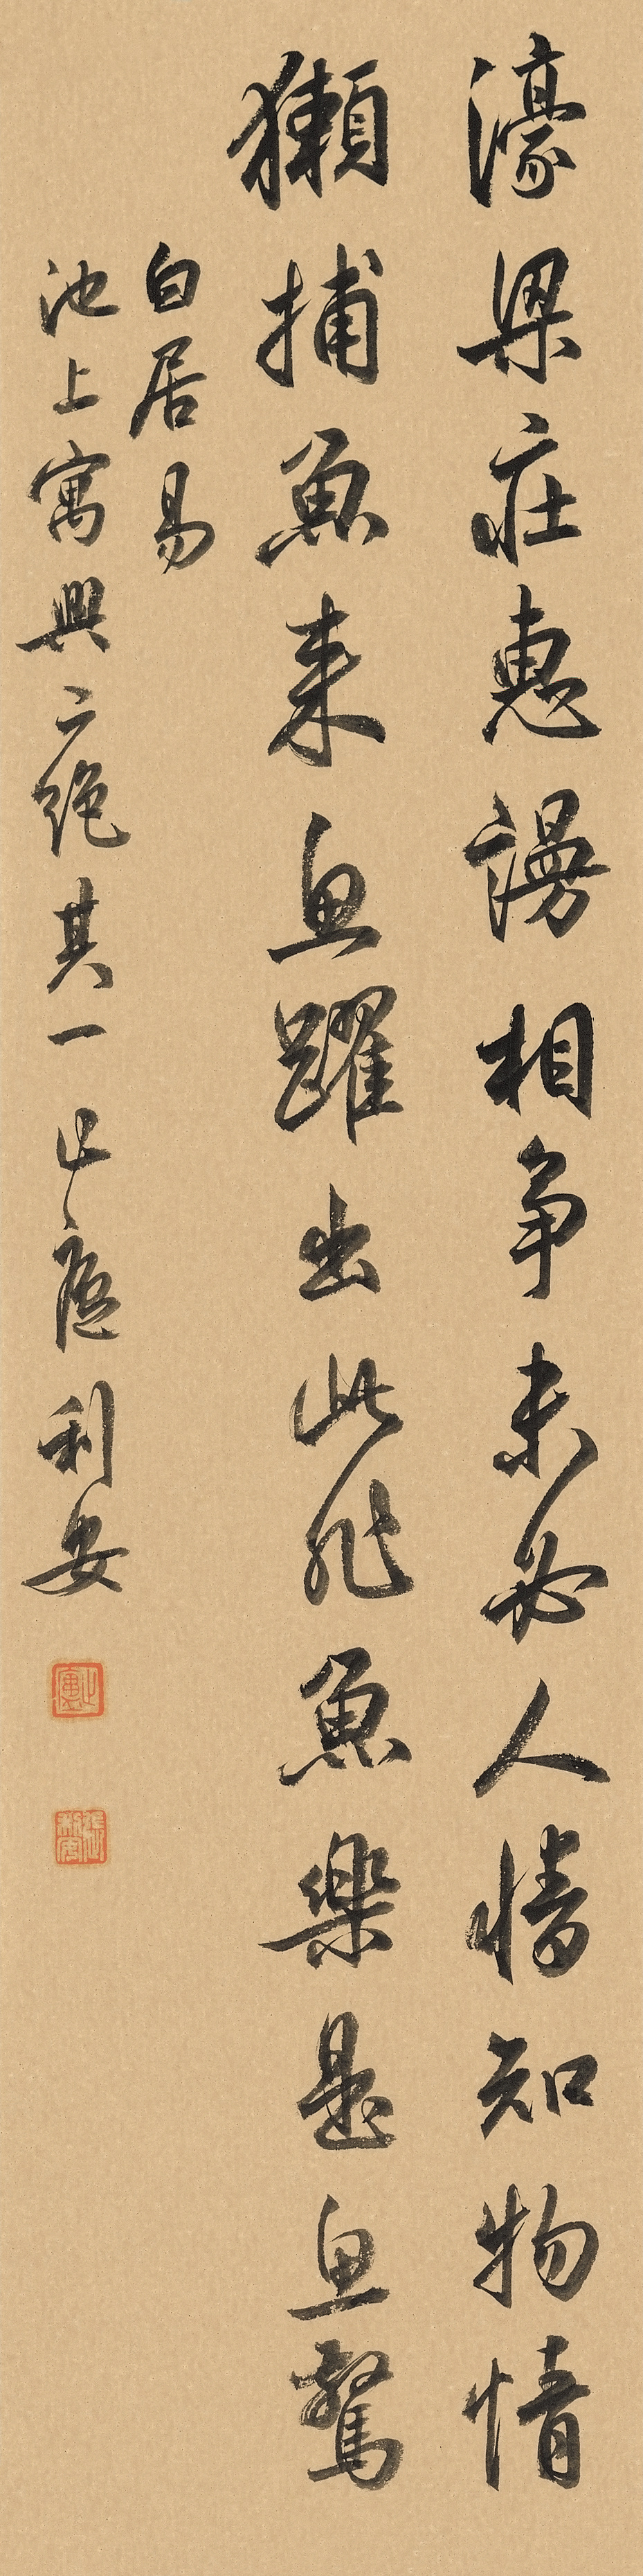 濠梁莊惠謾相爭未必人情知物情
獺捕魚來魚躍出此非魚樂是魚驚
白居易
池上寓興二絕其一 止廬利安